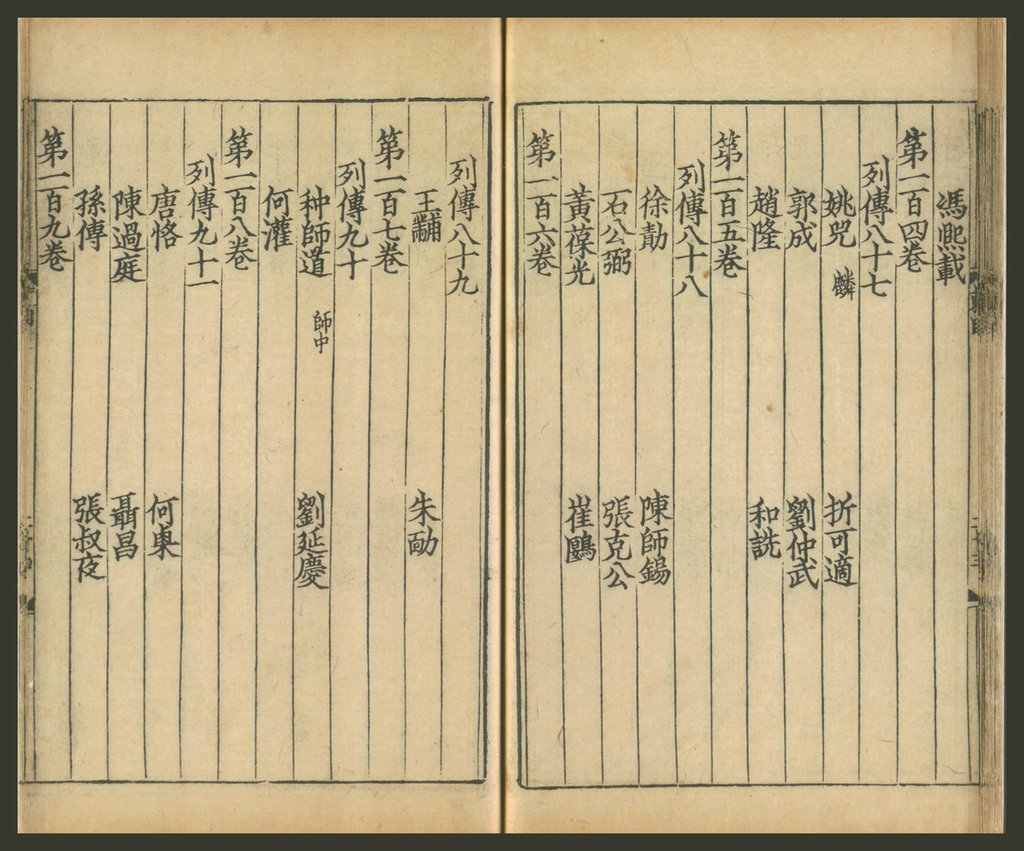 馮熈載
第一百四卷
列傳八十七
姚兕 麟 折可適
郭成 劉仲武
趙隆 和詵
第一百五卷
列傳八十八
徐勣 陳師錫
石公弼 張克公
黃葆光 崔鶠
第一百六卷
列傳八十九
王黼 朱勔
第一百七卷
列傳九十
种師道 師中 劉延慶
何灌
第一百八卷
列傳九十一
唐恪 何㮚
陳過庭 聶昌
孫傅 張叔夜
第一百九卷